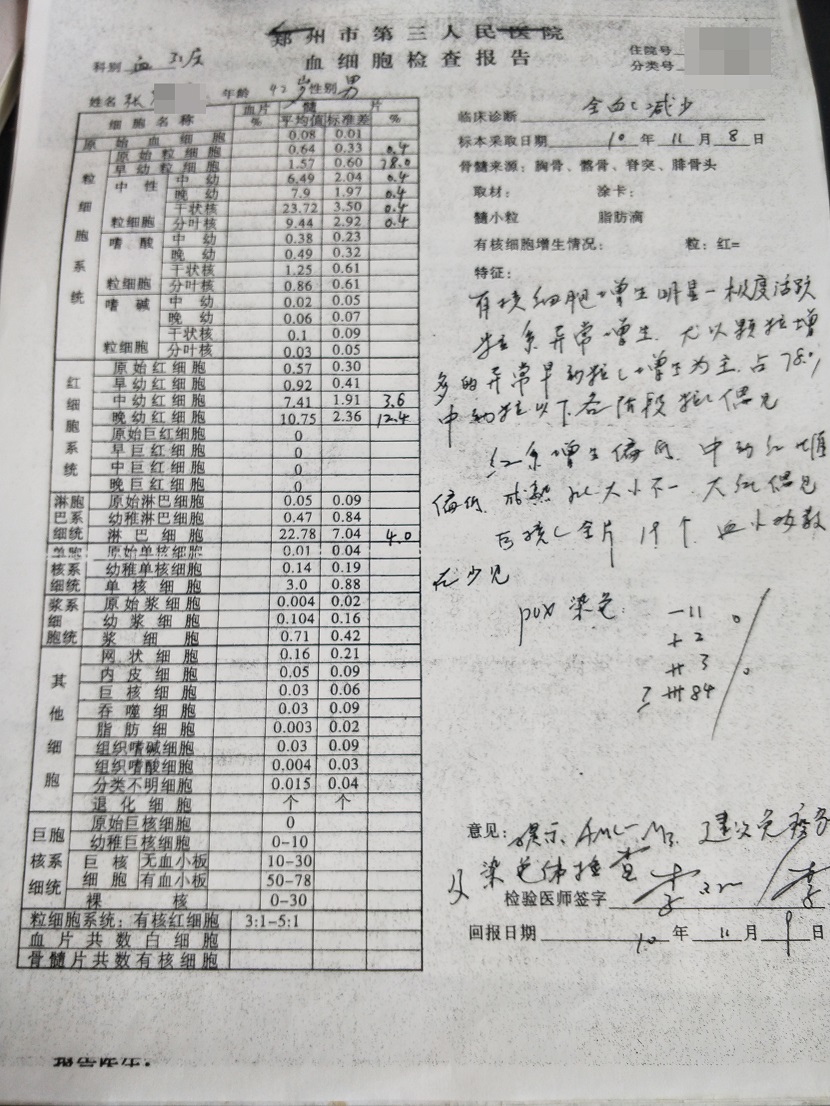 郑州市第三人民医院
血细胞检查报告
科别 血
住院号
分类号
姓名 张 年龄 42岁 性别 男
细胞名称 血片% 髓片 平均值 标准差 %
原始血细胞 0.08 0.01
粒细胞系统
原始粒细胞 0.64 0.33 0.4
早幼粒细胞 1.57 0.60 78.0
中性粒细胞 中幼 6.49 2.04 0.4
晚幼 7.9 1.97 0.4
干状核 23.72 3.50 0.4
分叶核 9.44 2.92 0.4
嗜酸粒细胞 中幼 0.38 0.23
晚幼 0.49 0.32
干状核 1.25 0.61
分叶核 0.86 0.61
嗜碱粒细胞 中幼 0.02 0.05
晚幼 0.06 0.07
干状核 0.1 0.09
分叶核 0.03 0.05
红细胞系统
原始红细胞 0.57 0.30
早幼红细胞 0.92 0.41
中幼红细胞 7.41 1.91 3.6
晚幼红细胞 10.75 2.36 12.4
原始巨红细胞 0
早巨红细胞 0
中巨红细胞 0
晚巨红细胞 0
淋胞巴系细统
原始淋巴细胞 0.05 0.09
幼稚淋巴细胞 0.47 0.84
淋巴细胞 22.78 7.04 4.0
单胞核系细统
原始单核细胞 0.01 0.04
幼稚单核细胞 0.14 0.19
单核细胞 3.0 0.88
浆系细胞统
原始浆细胞 0.004 0.02
幼浆细胞 0.104 0.16
浆细胞 0.71 0.42
其他细胞
网状细胞 0.16 0.21
内皮细胞 0.05 0.09
巨核细胞 0.03 0.06
吞噬细胞 0.03 0.09
脂肪细胞 0.003 0.02
组织嗜碱细胞 0.03 0.09
组织嗜酸细胞 0.004 0.03
分类不明细胞 0.015 0.04
退化细胞 个 个
巨胞核系细统
原始巨核细胞 0
幼稚巨核细胞 0-10
巨核细胞 无血小板 10-30
有血小板 50-78
裸核 0-30
粒细胞系统:有核红细胞 3:1-5:1
血片共数白细胞
骨髓片共数有核细胞
临床诊断 全血C减少
标本采取日期 10年11月8日
骨髓来源:胸骨、髂骨、脊突、腓骨头
取材: 涂卡:
髓小粒 脂肪滴
有核细胞增生情况: 粒:红=
特征:
有核细胞增生明显-极度活跃
粒系异常增生,尤以颗粒增
多的异常早幼粒C增生为主,占78%
中幼粒以下各阶段粒C偶见
红系增生偏低,中幼红
偏低,成熟RBC大小不一,大红偶见
巨核C全片19个,血小板散
在少见
POX染色: -11
+ 2
++ 3
84
%
意见: 提示AML-M3,建议免疫
及染色体检查
检验医师签字 李
回报日期 10年11月9日
报告医生: